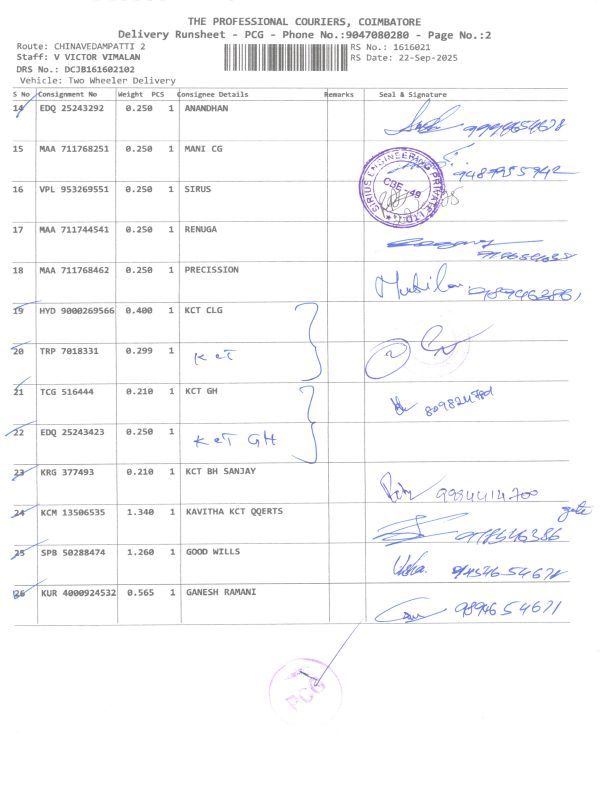 THE PROFESSIONAL COURIERS, COIMBATORE
Delivery Runsheet - PCG - Phone No.:9047080280 - Page No.:2
Route: CHINAVEDAMPATTI 2 RS No.: 1616021
Staff: V VICTOR VIMALAN RS Date: 22-Sep-2025
DRS No.: DCJB161602102
Vehicle: Two Wheeler Delivery
S No Consignment No Weight PCS Consignee Details Remarks Seal & Signature
14 EDQ 25243292 0.250 1 ANANDHAN
15 MAA 711768251 0.250 1 MANI CG
SIRIUS ENGINEERING PRIVATE LTD
CBE - 49
16 VPL 953269551 0.250 1 SIRUS
17 MAA 711744541 0.250 1 RENUGA
18 MAA 711768462 0.250 1 PRECISSION
19 HYD 9000269566 0.400 1 KCT CLG
20 TRP 7018331 0.299 1 KCT
21 TCG 516444 0.210 1 KCT GH
22 EDQ 25243423 0.250 1 KCT GH
23 KRG 377493 0.210 1 KCT BH SANJAY 9984414700
24 KCM 13506535 1.340 1 KAVITHA KCT QQERTS gate
25 SPB 50288474 1.260 1 GOOD WILLS Usha.
26 KUR 4000924532 0.565 1 GANESH RAMANI 9894654671
PCG